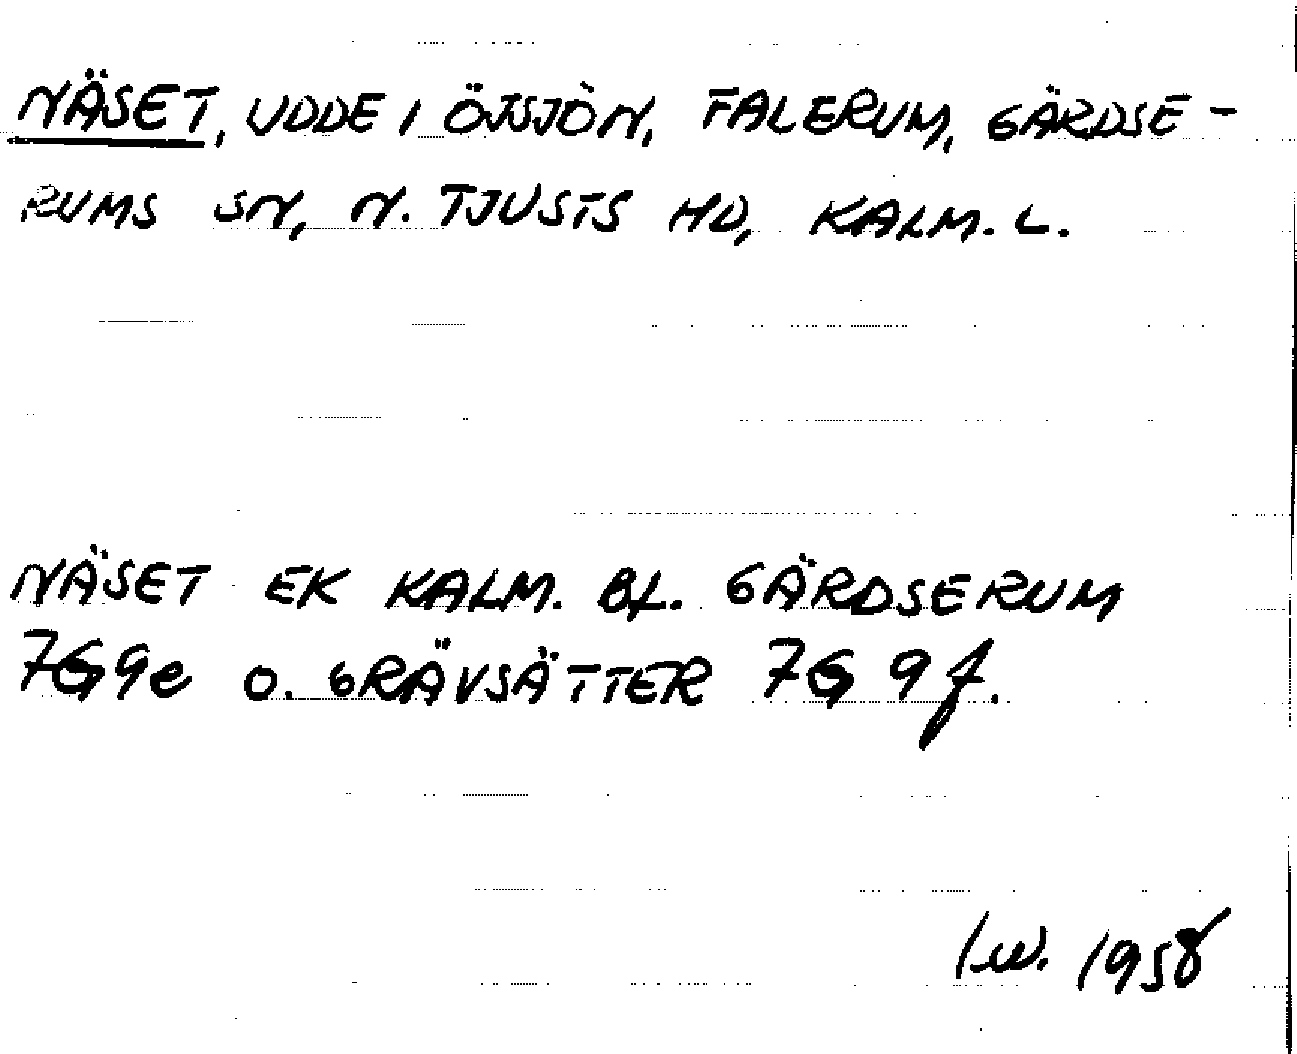 NÄSET, UDDE I ÖJSJÖN, FALERUM, GÄRDSE-
RUMS SN, N. TJUSTS HD, KALM. L.
NÄSET EK KALM. BL. GÄRDSERUM
7G9e O. GRÄVSÄTTER 7G 9f.
1958